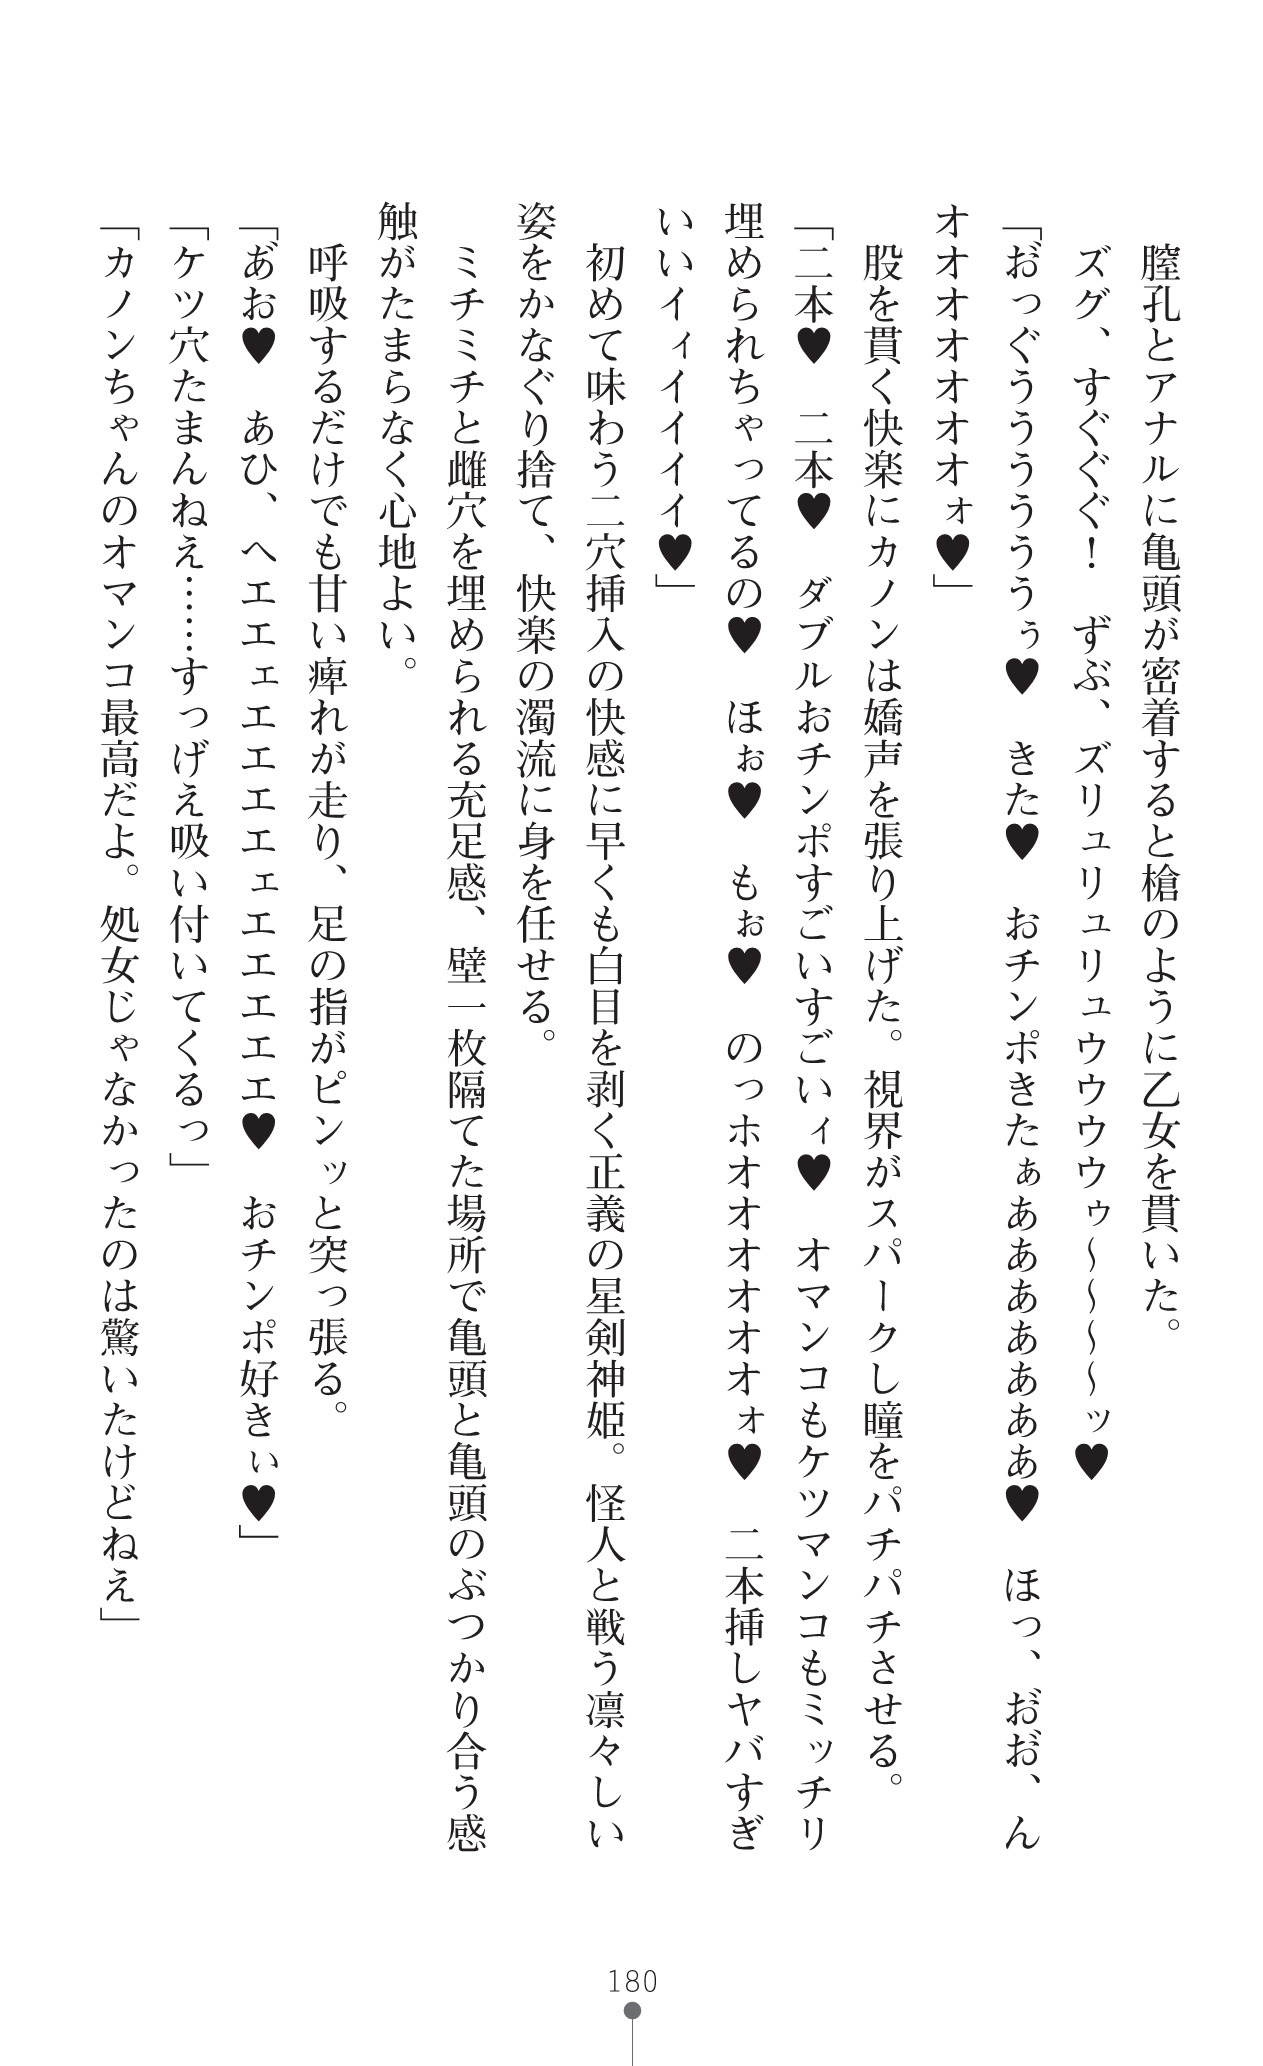 膣孔とアナルに亀頭が密着すると槍のように乙女を貫いた。
　ズグ、すぐぐぐ！　ずぶ、ズリュリュリュウウウウゥ～～～～ッ♥
「お゛っぐうううううううぅ♥　きた♥　おチンポきたぁあああああああ♥　ほっ、お゛お゛、ん
オオオオオオオォ♥」
　股を貫く快楽にカノンは嬌声を張り上げた。視界がスパークし瞳をパチパチさせる。
「二本♥　二本♥　ダブルおチンポすごいすごいィ♥　オマンコもケツマンコもミッチリ
埋められちゃってるの♥　ほぉ♥　もぉ♥　のっホオオオオオオォ♥　二本挿しヤバすぎ
いいイィイイイイ♥」
　初めて味わう二穴挿入の快感に早くも白目を剥く正義の星剣神姫。怪人と戦う凛々しい
姿をかなぐり捨て、快楽の濁流に身を任せる。
　ミチミチと雌穴を埋められる充足感、壁一枚隔てた場所で亀頭と亀頭のぶつかり合う感
触がたまらなく心地よい。
　呼吸するだけでも甘い痺れが走り、足の指がピンッと突っ張る。
「あ゛お♥　あひ、へエエェエエエエェエエエエエ♥　おチンポ好きぃ♥」
「ケツ穴たまんねえ……すっげえ吸い付いてくるっ」
「カノンちゃんのオマンコ最高だよ。処女じゃなかったのは驚いたけどねえ」
180